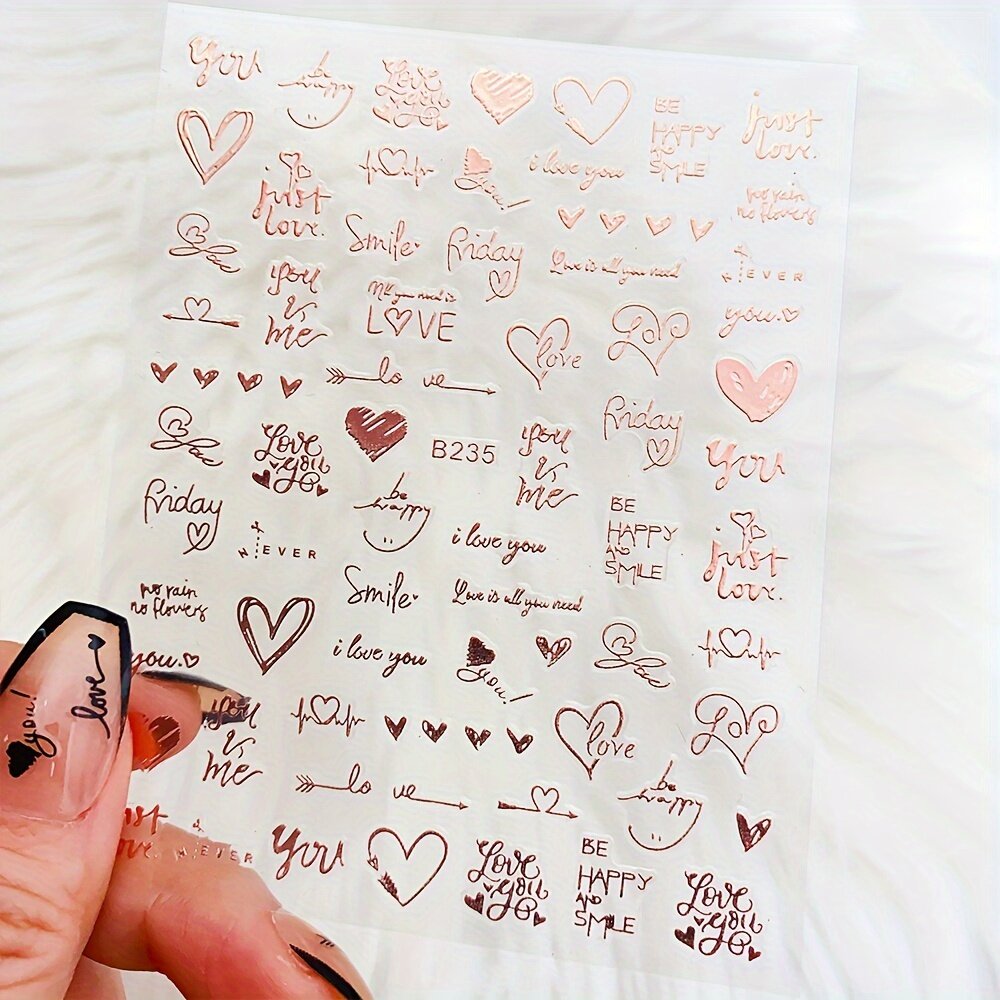 You
be
happy
Love
you
BE
HAPPY
AND
SMILE
just
love.
just
love.
you!
i love you
no rain
no flowers
Smile
friday
Love is all you need
N EVER
you
&
me
All you need is
LOVE
love
Love
you.
lo ve
friday
You
Love
you
B235
you
&
me
friday
be
happy
BE
HAPPY
AND
SMILE
just
love.
N EVER
i love you
no rain
no flowers
Smile
Love is all you need
you.
i love you
you!
you!
love
you
&
me
love
Love
lo ve
be
happy
just
love.
N EVER
You
Love
you
BE
HAPPY
AND
SMILE
Love
you